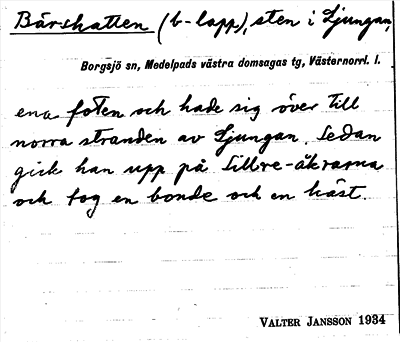 Bärshatten (b-lapp), sten i Ljungan,
Borgsjö sn, Medelpads västra domsagas tg, Västernorrl. l.
ena foten och hade sig över till
norra stranden av Ljungan. Sedan
gick han upp på Sillre-åkrarna
och tog en bonde och en häst.
VALTER JANSSON 1934